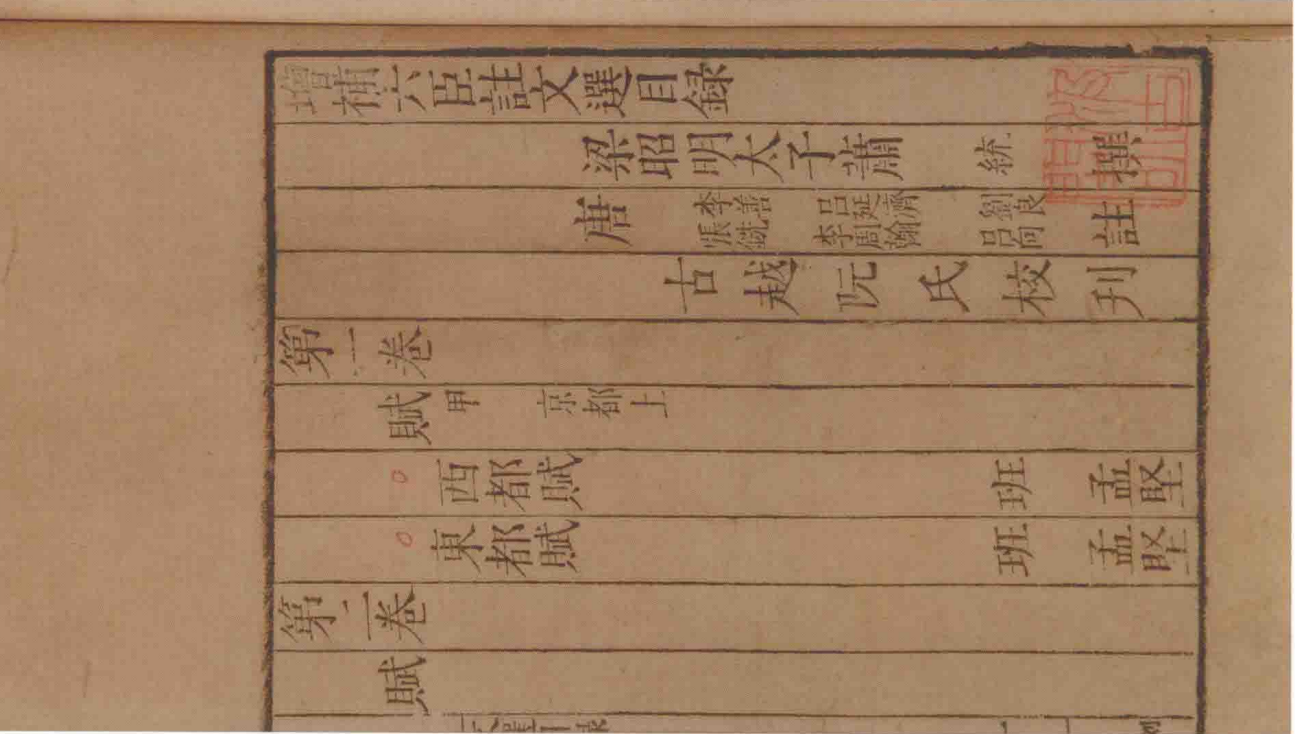 增補六臣註文選目録
梁昭明太子蕭 統 撰
唐 李善 張銑 呂延濟 李周翰 劉良 呂向 註
古越阮氏校刋
第一卷
賦甲 京都上
西都賦 班孟堅
東都賦 班孟堅
第二卷
賦